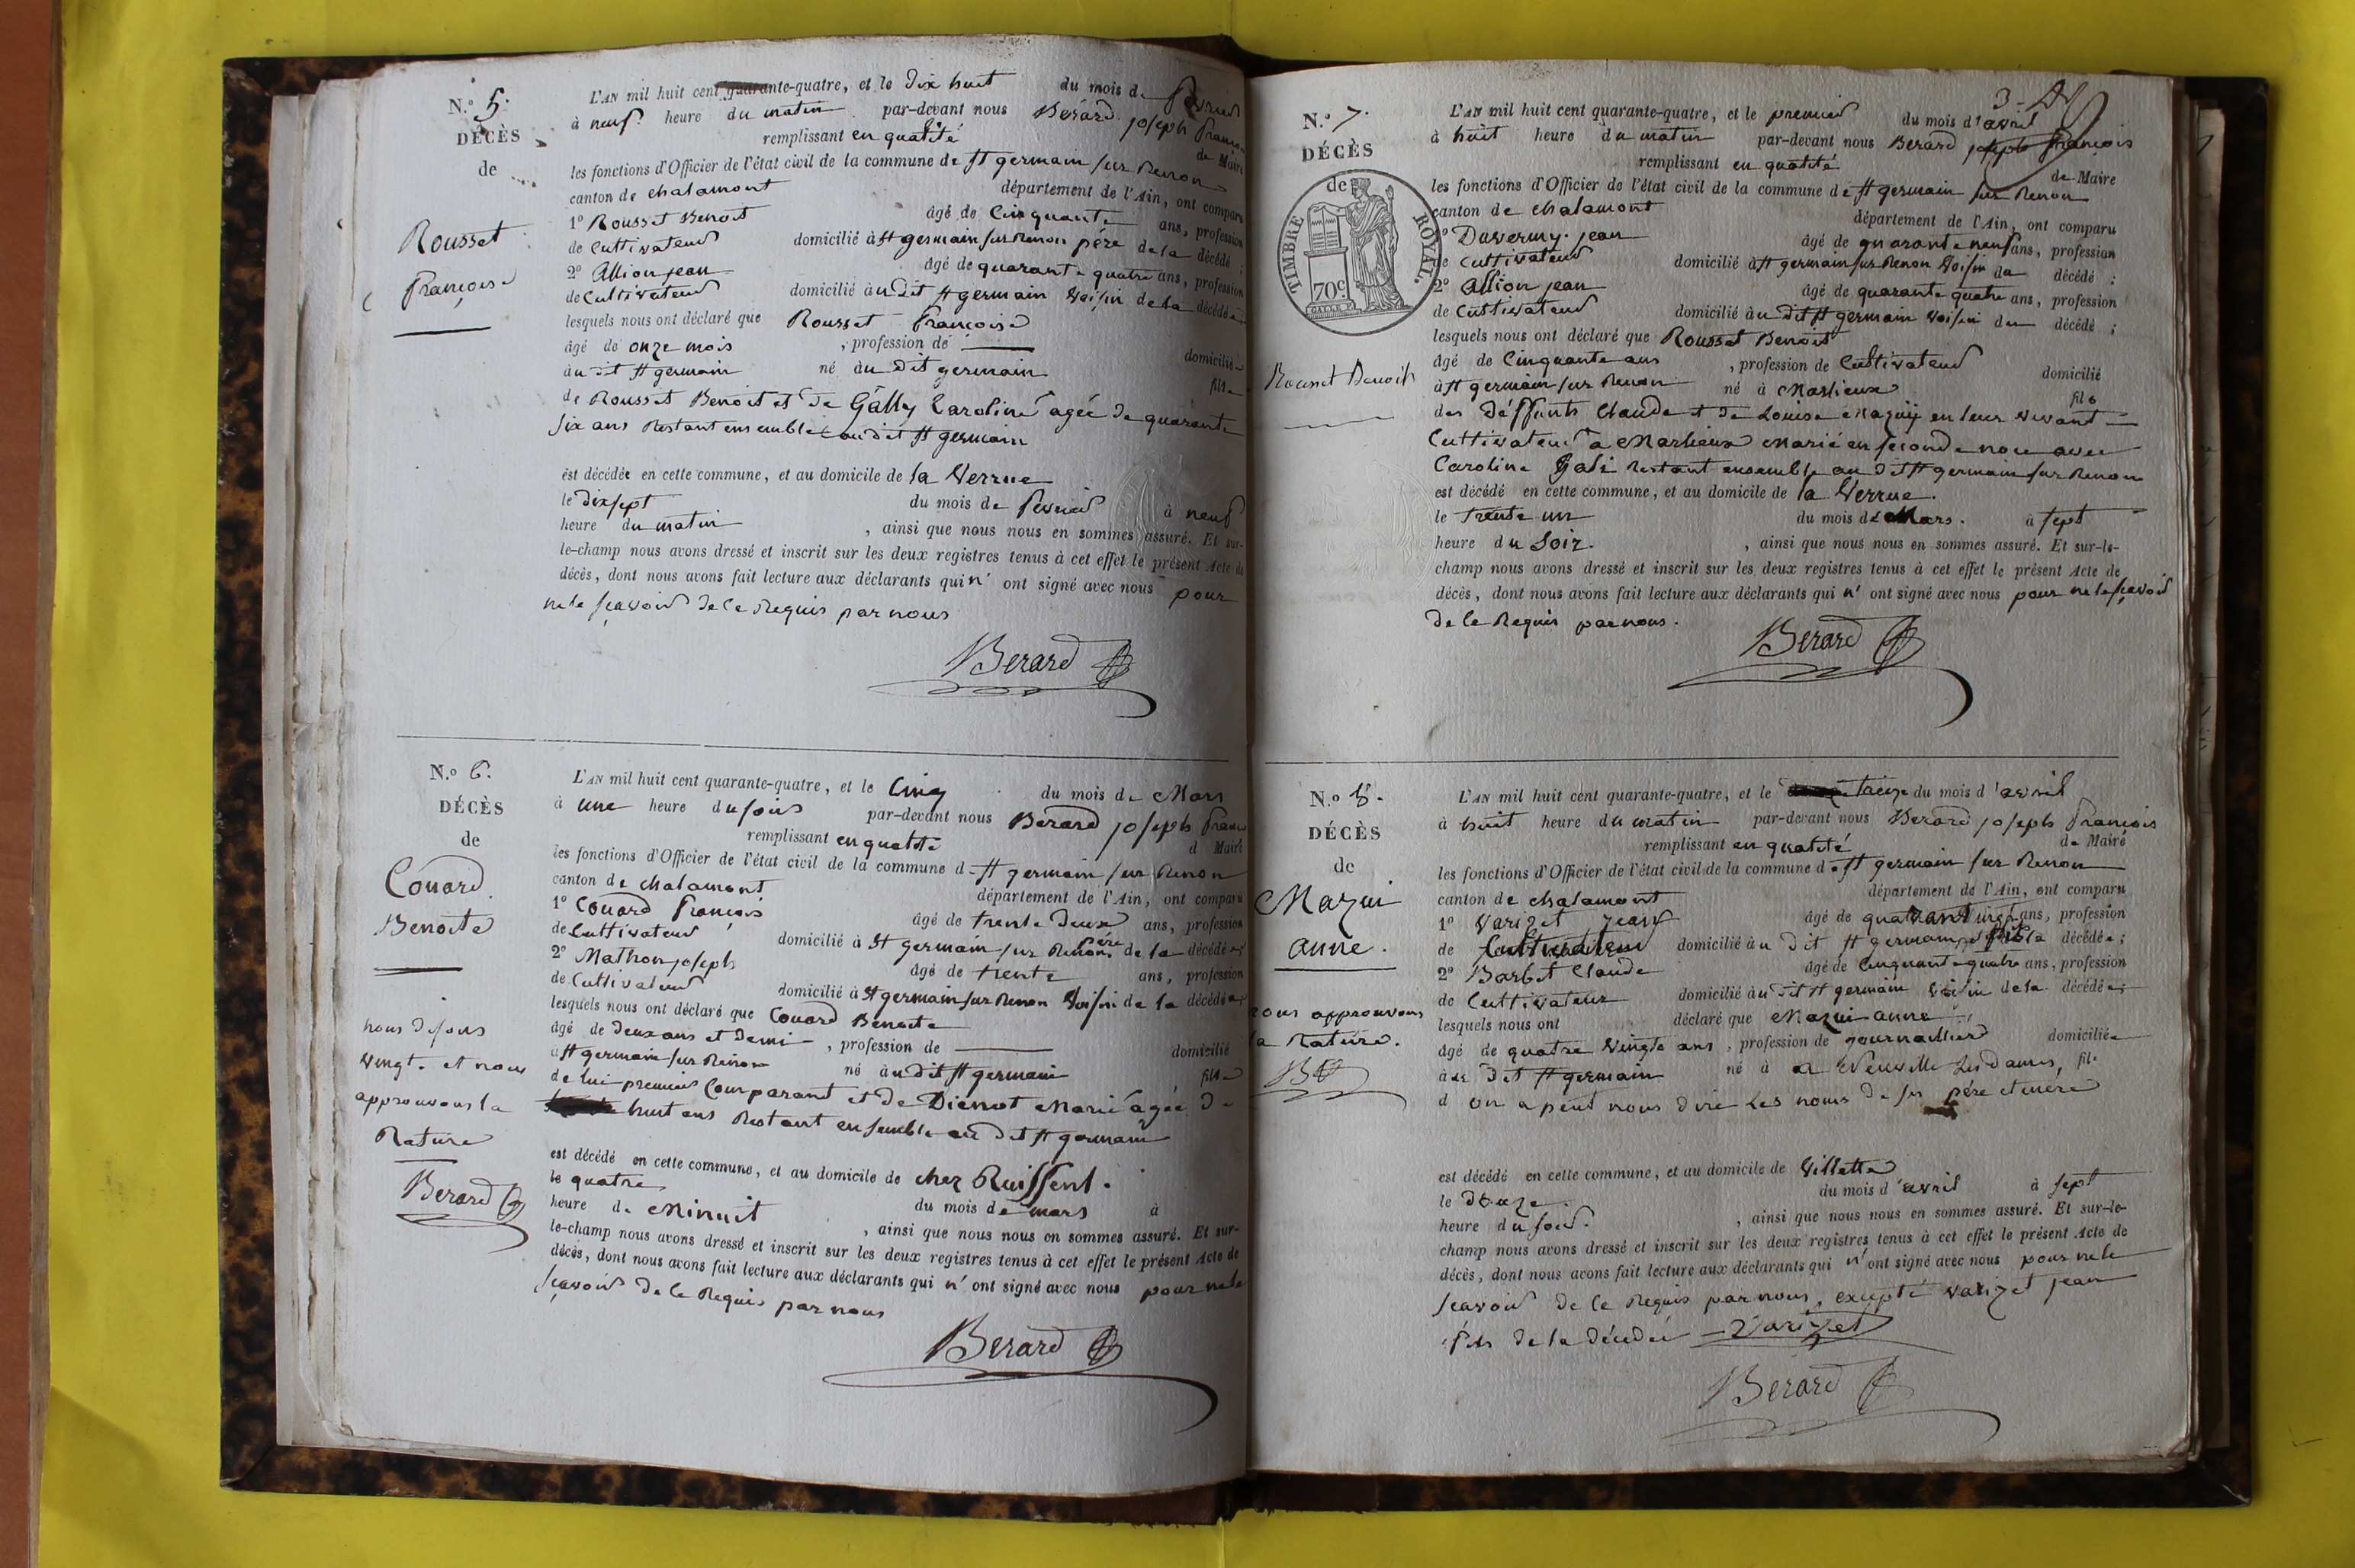 N.º 5.
DÉCÈS
de
Rousset
Françoise
L'AN mil huit cent quarante-quatre, et le dix huit du mois de fevrier
à neuf heure du matin par-devant nous Bérard joseph François
remplissant en qualité de Maire
les fonctions d'Officier de l'état civil de la commune de st germain sur Renon
canton de chalamont département de l'Ain, ont comparu
1º Rousset Benoit âgé de Cinquante ans, profession
de Cultivateur domicilié à st germain sur Renon pére de la décédé ;
2º Allion jean âgé de quarante quatre ans, profession
de Cultivateur domicilié au dit st germain Voisin de la décédée
lesquels nous ont déclaré que Rousset Françoise
âgé de onze mois , profession de — domiciliée
au dit st germain né au dit germain fille
de Rousset Benoit et de Gâlly Caroline agée de quarante
six ans Restant ensemble au dit st germain
est décédée en cette commune, et au domicile de la Verrue
le dix sept du mois de fevrier à neuf
heure du matin , ainsi que nous nous en sommes assuré. Et sur-
le-champ nous avons dressé et inscrit sur les deux registres tenus à cet effet le présent Acte de
décès, dont nous avons fait lecture aux déclarants qui n' ont signé avec nous pour
ne le sçavoir de ce Requis par nous
Berard
N.º 6.
DÉCÈS
de
Couard
Benoite
nous disons
vingt. et nous
approuvons la
Rature
Berard
L'AN mil huit cent quarante-quatre, et le Cinq du mois de Mars
à une heure du soir par-devant nous Berard joseph Franços
remplissant en qualité d Maire
les fonctions d'Officier de l'état civil de la commune d st germain sur Renon
canton de chalamont département de l'Ain, ont comparu
1º Couard François âgé de trente deux ans, profession
de Cultivateur domicilié à st germain sur Renon pére de la décédée
2º Mathon joseph âgé de trente ans, profession
de Cultivateur domicilié à st germain sur Renon Voisin de la décédée
lesquels nous ont déclaré que Couard Benoite
âgé de deux ans et demi , profession de — domicilié
à st germain sur Renon né au dit st germain fille
de lui premier Comparant et de Dienot Marie agée de
huit ans Restant ensemble au dit st germain
est décédé en cette commune, et au domicile de chez Ruissent.
le quatre du mois de mars à
heure de Minuit , ainsi que nous nous en sommes assuré. Et sur-
le-champ nous avons dressé et inscrit sur les deux registres tenus à cet effet le présent Acte de
décès, dont nous avons fait lecture aux déclarants qui n' ont signé avec nous pour ne le
sçavoir de ce Requis par nous
Berard
3
N.º 7.
DÉCÈS
de
TIMBRE ROYAL.
70c.
Rousset Benoit
L'AN mil huit cent quarante-quatre, et le premier du mois d'avril
à huit heure du matin par-devant nous Berard joseph François
remplissant en qualité de Maire
les fonctions d'Officier de l'état civil de la commune de st germain sur Renon
canton de chalamont département de l'Ain, ont comparu
1º Duvermy jean âgé de quarante neuf ans, profession
de Cultivateur domicilié à st germain sur Renon Voisin du décédé ;
2º Allion jean âgé de quarante quatre ans, profession
de Cultivateur domicilié au dit st germain Voisin du décédé ;
lesquels nous ont déclaré que Rousset Benoit
âgé de Cinquante ans , profession de Cultivateur domicilié
à st germain sur Renon né à Marlieux fils
des déffunts Claude et de Louise Mazuy en leur vivant
Cultivateur a Marlieux Marié en seconde noce avec
Caroline Gali Restant ensemble au dit st germain sur Renon
est décédé en cette commune, et au domicile de la Verrue.
le Trente un du mois de Mars. à sept
heure du Soir. , ainsi que nous nous en sommes assuré. Et sur-le-
champ nous avons dressé et inscrit sur les deux registres tenus à cet effet le présent Acte de
décès, dont nous avons fait lecture aux déclarants qui n' ont signé avec nous pour ne le sçavoir
de ce Requis par nous.
Berard
N.º 8.
DÉCÈS
de
Mazui
anne.
nous approuvons
la Rature.
L'AN mil huit cent quarante-quatre, et le treize du mois d'avril
à huit heure du matin par-devant nous Berard joseph François
remplissant en qualité de Maire
les fonctions d'Officier de l'état civil de la commune de st germain sur Renon
canton de chalamont département de l'Ain, ont comparu
1º Varizet Jean âgé de ans, profession
de Cultivateur domicilié au dit st germain fils la décédée ;
2º Barbet Claude âgé de Cinquante quatre ans, profession
de Cultivateur domicilié au dit st germain voisin de la décédée ;
lesquels nous ont déclaré que Mazui anne
âgé de quatre Vingts ans , profession de journallier domiciliée
à au dit st germain né à a Neuville Les dames, fille
d on a peut nous dire Les noms de ses pére et mere
est décédé en cette commune, et au domicile de Villette
le douze. du mois d'avril à sept
heure du soir. , ainsi que nous nous en sommes assuré. Et sur-le-
champ nous avons dressé et inscrit sur les deux registres tenus à cet effet le présent Acte de
décès, dont nous avons fait lecture aux déclarants qui n' ont signé avec nous pour ne le
sçavoir de ce Requis par nous, excepté varizet jean
fils de la décédée Varizet
Berard